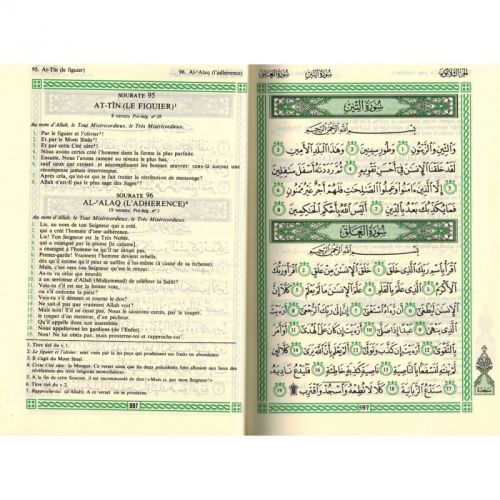 95. At-Tîn (le figuier) 96. Al-'Alaq (l'adhérence)
SOURATE 95
AT-TÎN (LE FIGUIER)¹
8 versets Pré-hég. n° 28
Au nom d'Allah, le Tout Miséricordieux, le Très Miséricordieux.
1. Par le figuier et l'olivier²!
2. Et par le Mont Sînîn³!
3. Et par cette Cité sûre⁴!
4. Nous avons certes créé l'homme dans la forme la plus parfaite.
5. Ensuite, Nous l'avons ramené au niveau le plus bas,
6. sauf ceux qui croient et accomplissent les bonnes œuvres: ceux-là auront une
récompense jamais interrompue.
7. Après cela, qu'est-ce qui te fait traiter la rétribution de mensonge?
8. Allah n'est-Il pas le plus sage des Juges?
SOURATE 96
AL-'ALAQ (L'ADHÉRENCE)⁶
19 versets Pré-hég. n° 1
Au nom d'Allah, le Tout Miséricordieux, le Très Miséricordieux.
1. Lis, au nom de ton Seigneur qui a créé,
2. qui a créé l'homme d'une adhérence.
3. Lis! Ton Seigneur est le Très Noble,
4. qui a enseigné par la plume [le calame],
5. a enseigné à l'homme ce qu'il ne savait pas.
6. Prenez-garde! Vraiment l'homme devient rebelle,
7. dès qu'il estime qu'il peut se suffire à lui-même (à cause de sa richesse).
8. Mais, c'est vers ton Seigneur qu'est le retour.
9. As-tu vu celui qui interdit
10. à un serviteur d'Allah (Muhammad) de célébrer la Salât?
11. Vois-tu s'il est sur la bonne voie,
12. ou s'il ordonne la piété?
13. Vois-tu s'il dément et tourne le dos?
14. Ne sait-il pas que vraiment Allah voit?
15. Mais non! S'il ne cesse pas, Nous le saisirons certes, par le toupet,
16. le toupet d'un menteur, d'un pécheur.
17. Qu'il appelle donc son assemblée.
18. Nous appellerons les gardiens (de l'Enfer).
19. Non! Ne lui obéis pas; mais prosterne-toi et rapproche-toi⁷.
1. Titre tiré du v. 1.
2. Le figuier et l'olivier: sont visés par là les pays qui produisent ses fruits en abondance
3. Il s'agit du Mont Sinaï.
6. Titre tiré du v. 2.
597
الجزء الثلاثون سورة التين سورة العلق
سورة التين
بسم الله الرحمن الرحيم
والتين والزيتون ١ وطور سينين ٢ وهذا البلد الأمين ٣
لقد خلقنا الإنسن في أحسن تقويم ٤ ثم رددنه أسفل سفلين
٥ إلا الذين ءامنوا وعملوا الصلحت فلهم أجر غير ممنون ٦
فما يكذبك بعد بالدين ٧ أليس الله بأحكم الحكمين ٨
سورة العلق
بسم الله الرحمن الرحيم
اقرأ باسم ربك الذي خلق ١ خلق الإنسن من علق ٢ اقرأ وربك
الأكرم ٣ الذي علم بالقلم ٤ علم الإنسن ما لم يعلم ٥ كلا إن
الإنسن ليطغى ٦ أن رءاه استغنى ٧ إن إلى ربك الرجعى ٨ أرءيت
الذي ينهى ٩ عبدا إذا صلى ١٠ أرءيت إن كان على الهدى ١١ أو أمر
بالتقوى ١٢ أرءيت إن كذب وتولى ١٣ ألم يعلم بأن الله يرى ١٤ كلا لئن
لم ينته لنسفعا بالناصية ١٥ ناصية كذبة خاطئة ١٦ فليدع ناديه
١٧ سندع الزبانية ١٨ كلا لا تطعه واسجد واقترب ۩ ١٩
سجدة
597